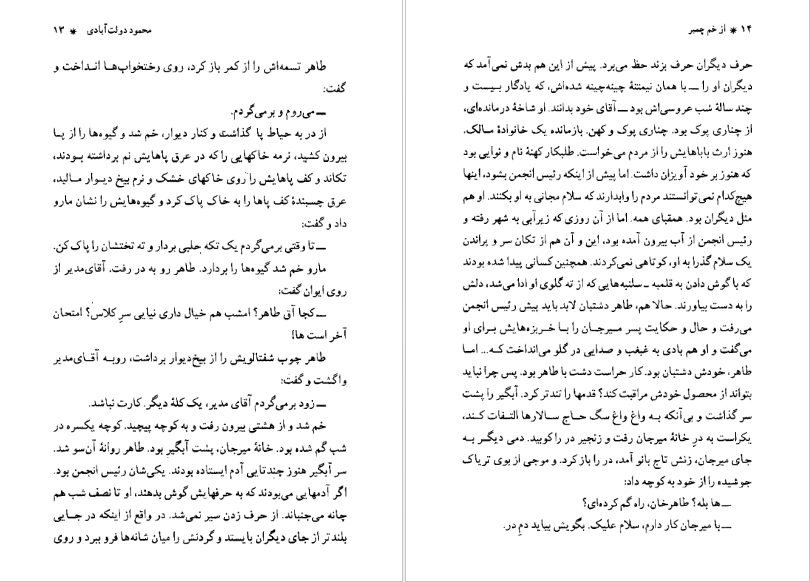 محمود دولت‌آبادی * ۱۳
طاهر تسمه‌اش را از کمر باز کرد، روی رختخوابها انداخت و
گفت:
ــ می‌روم و برمی‌گردم.
از در به حیاط پا گذاشت و کنار دیوار، خم شد و گیوه‌ها را از پا
بیرون کشید، نرمه خاکهایی را که در عرق پاهایش نم برداشته بودند،
تکاند و کف پاهایش را روی خاکهای خشک و نرم بیخ دیوار مالید،
عرق چسبندهٔ کف پاها را به خاک پاک کرد و گیوه‌هایش را نشان مارو
داد و گفت:
ــ تا وقتی برمی‌گردم یک تکه حلبی بردار و ته تختشان را پاک کن.
مارو خم شد گیوه‌ها را بردارد. طاهر رو به در رفت. آقای‌مدیر از
روی ایوان گفت:
ــ کجا آق طاهر؟ امشب هم خیال داری نیایی سر کلاس؟ امتحان
آخر است ها!
طاهر چوب شفتالویش را از بیخ‌دیوار برداشت، روبه آقای‌مدیر
واگشت و گفت:
ــ زود برمی‌گردم آقای مدیر، یک کلهٔ دیگر. کارت نباشد.
خم شد و از هشتی بیرون رفت و به کوچه پیچید. کوچه یکسره در
شب گم شده بود. خانهٔ میرجان، پشت آبگیر بود. طاهر روانهٔ آن‌سو شد.
سر آبگیر هنوز چندتایی آدم ایستاده بودند. یکی‌شان رئیس انجمن بود.
اگر آدمهایی می‌بودند که به حرفهایش گوش بدهند، او تا نصف شب هم
چانه می‌جنباند. از حرف زدن سیر نمی‌شد. در واقع از اینکه در جایی
بلندتر از جای دیگران بایستد و گردنش را میان شانه‌ها فرو ببرد و روی
۱۴ * از خم چمبر
حرف دیگران حرف بزند حظ می‌برد. پیش از این هم بدش نمی‌آمد که
دیگران او را ــ با همان نیمتنهٔ چینه‌چینه شده‌اش، که یادگار بیست و
چند سالهٔ شب عروسی‌اش بود ــ آقای خود بدانند. او شاخهٔ درمانده‌ای،
از چناری پوک بود. چناری پوک و کهن. بازمانده یک خانوادهٔ سالک.
هنوز ارث باباهایش را از مردم می‌خواست. طلبکار کهنهٔ نام و نوایی بود
که هنوز بر خود آویزان داشت. اما پیش از اینکه رئیس انجمن بشود، اینها
هیچ‌کدام نمی‌توانستند مردم را وابدارند که سلام مجانی به او بکنند. او هم
مثل دیگران بود. همقبای همه. اما از آن روزی که زیرآبی به شهر رفته و
رئیس انجمن از آب بیرون آمده بود، این و آن هم از تکان سر و پراندن
یک سلام گذرا به او، کوتاهی نمی‌کردند. همچنین کسانی پیدا شده بودند
که با گوش دادن به قلمبه ـ سلنبه‌هایی که از ته گلوی او ادا می‌شد، دلش
را به دست بیاورند. حالا هم، طاهر دشتبان لابد باید پیش رئیس انجمن
می‌رفت و حال و حکایت پسر میرجان را با خربزه‌هایش برای او
می‌گفت و او هم بادی به غبغب و صدایی در گلو می‌انداخت که... اما
طاهر، خودش دشتبان بود. کار حراست دشت با طاهر بود. پس چرا نباید
بتواند از محصول خودش مراقبت کند؟ قدمها را تندتر کرد. آبگیر را پشت
سر گذاشت و بی‌آنکه به واغ واغ سگ حاج سالارها التفات کند،
یکراست به در خانهٔ میرجان رفت و زنجیر در را کوبید. دمی دیگر به
جای میرجان، زنش تاج بانو آمد، در را باز کرد. و موجی از بوی تریاک
جوشیده را از خود به کوچه داد:
ــ ها بله؟ طاهرخان، راه گم کرده‌ای؟
ــ با میرجان کار دارم، سلام علیک. بگویش بیاید دم در.